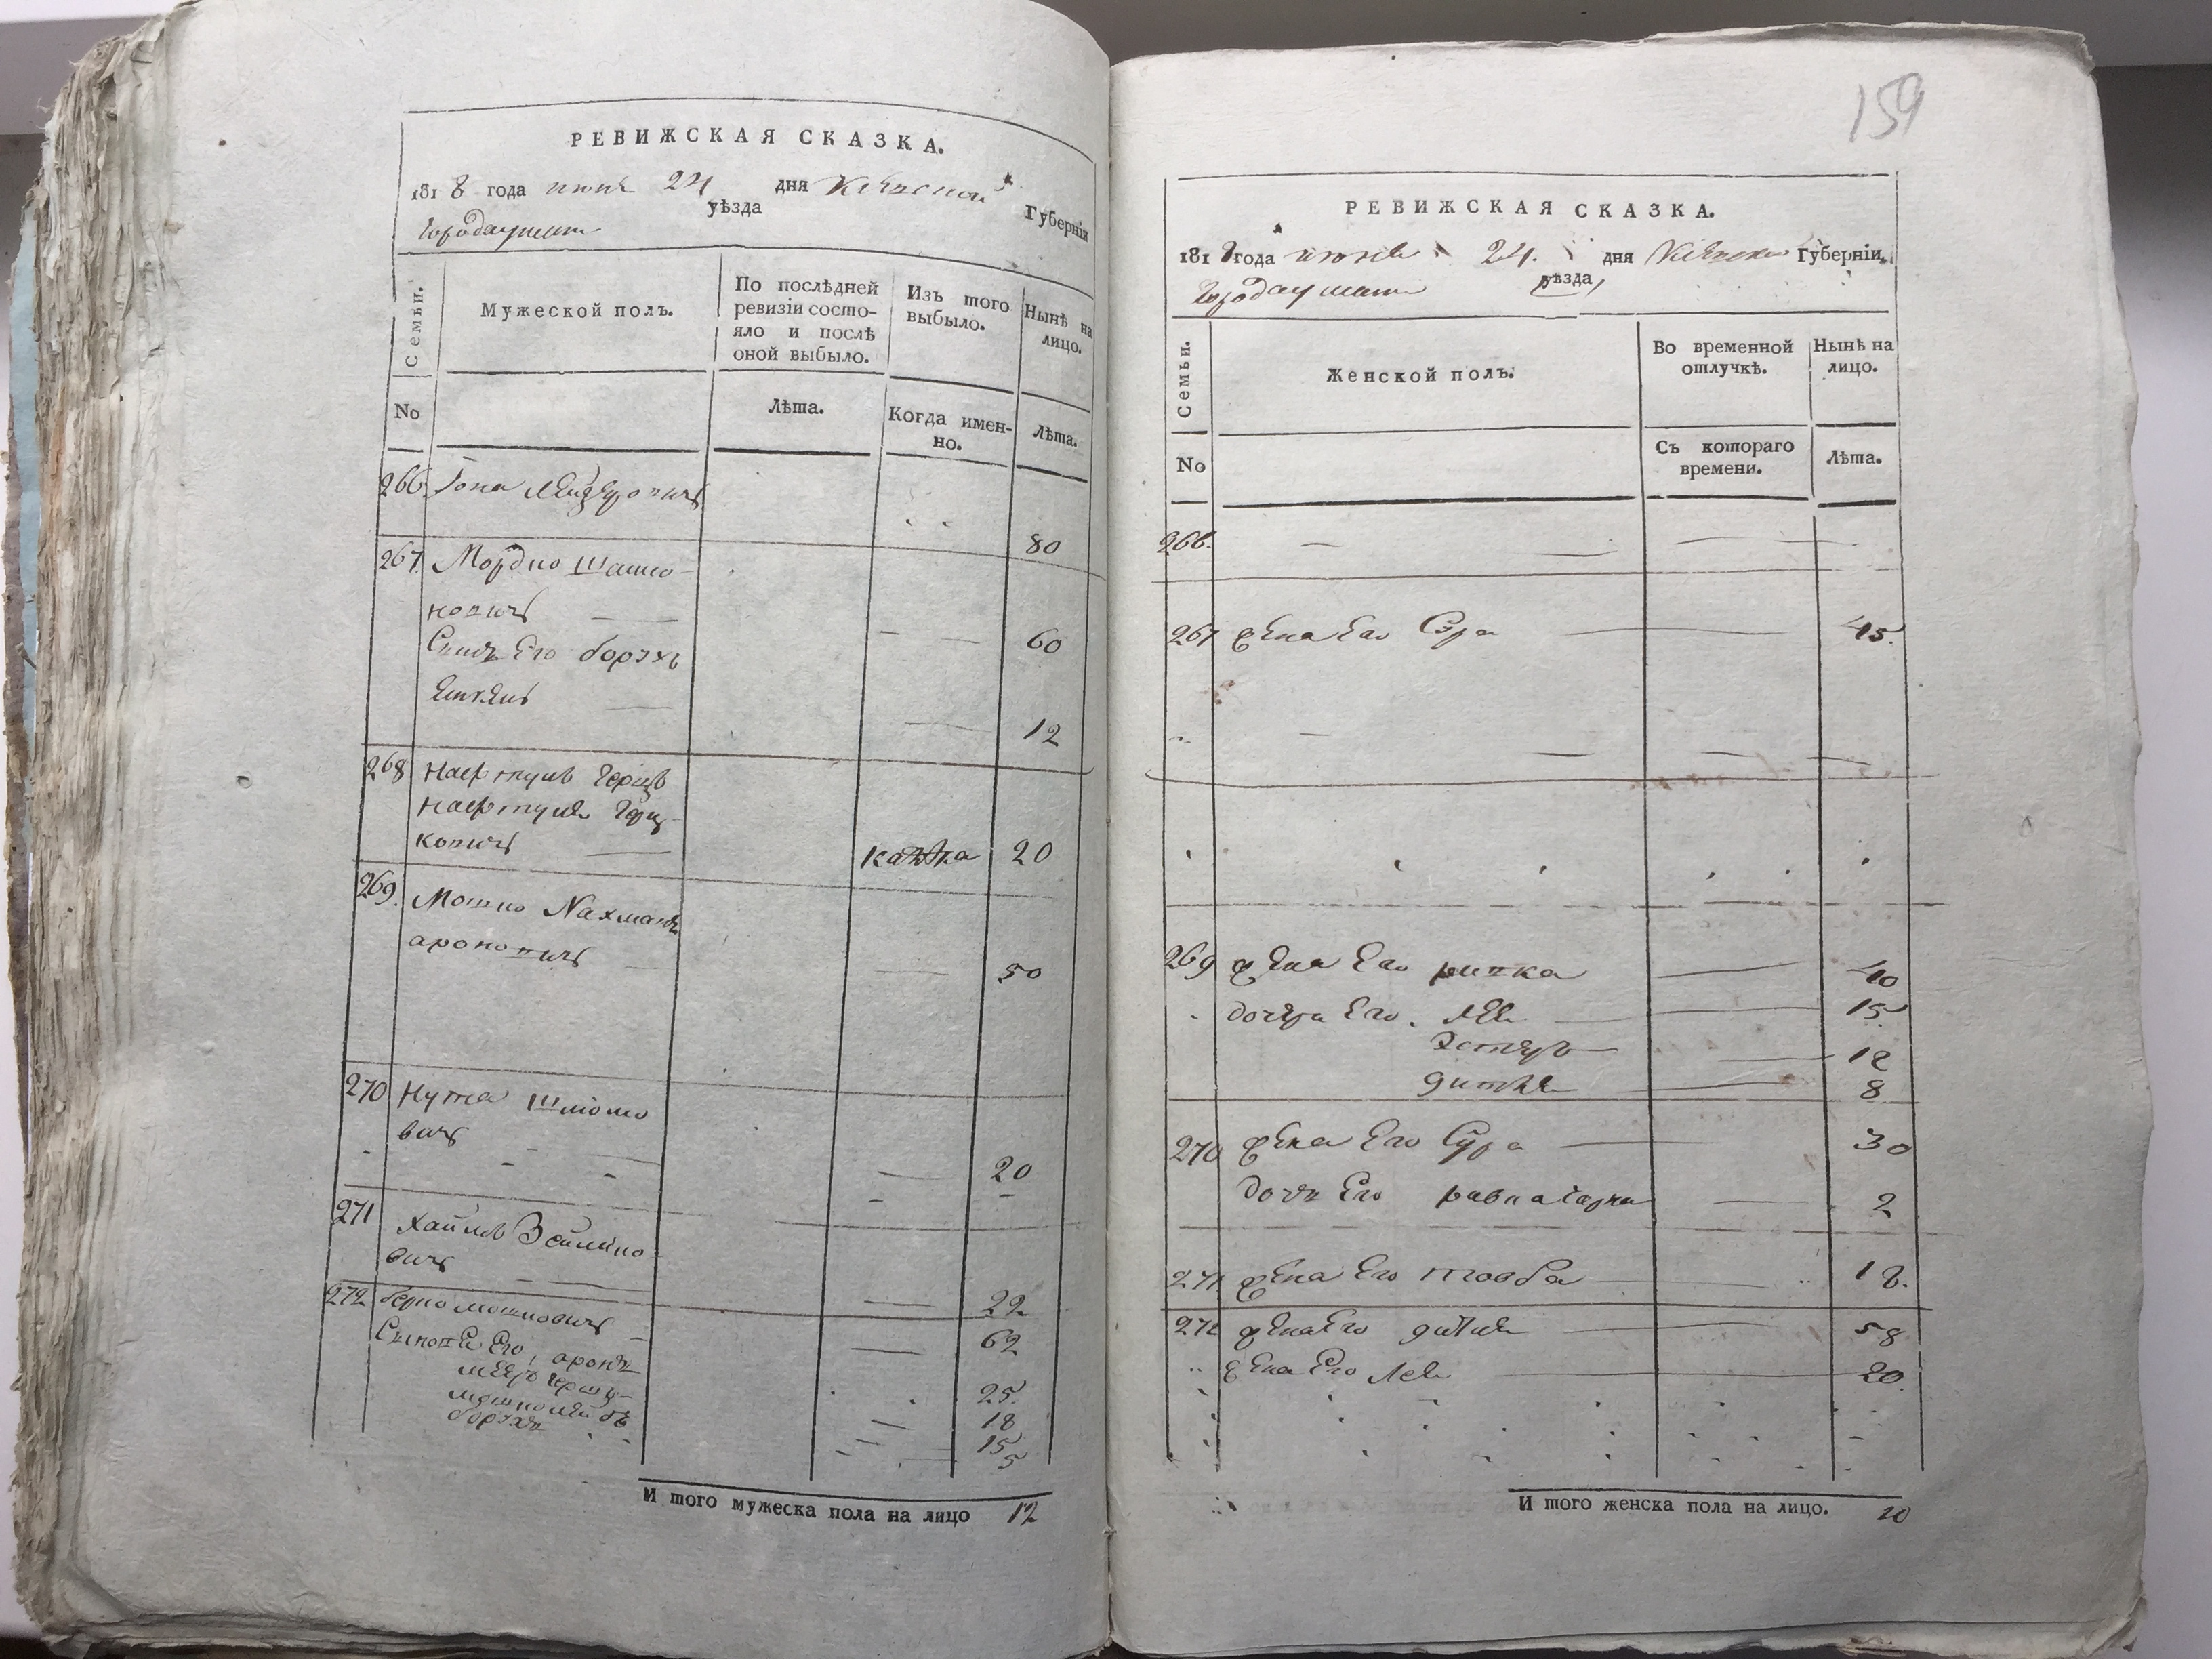 РЕВИЖСКАЯ СКАЗКА.
1818 года июня 24 дня Кіевской Губерніи
уѣзда
Семьи.
Мужеской полъ.
По послѣдней ревизіи состояло и послѣ оной выбыло.
Изъ того выбыло.
Нынѣ на лицо.
No
Лѣта.
Когда именно.
Лѣта.
266. Іона Лейзеровичъ
80
267. Мордко Шашко-
вичъ
60
Сынъ Его борухъ
12
268 Нафтулъ Герцъ
Нафтуля Герц-
ковичъ 20
269. Мошко Нахманъ
ароновичъ
50
270 Нута Шлiомо
вичъ
20
271
вичъ
22
272 берко мошковичъ
62
Сыновья Его, аронъ
25
мееръ герш-
18
мошко лейбъ
15
борухъ
5
И того мужеска пола на лицо 12
159
РЕВИЖСКАЯ СКАЗКА.
1818 года июня 24. дня Кіевской Губерніи,
уѣзда
Семьи.
Женской полъ.
Во временной отлучкѣ.
Нынѣ на лицо.
No
Съ котораго времени.
Лѣта.
266.
267 жена Его Сура 45.
269 жена Его ривка 40
дочери Его. лея 15
Эстеръ 12
гитля 8
270 жена Его Сура 30
дочь Его 2
271 жена Его товба 18.
272 жена Его гитля 58
жена Его Лея 20
И того женска пола на лицо. 10